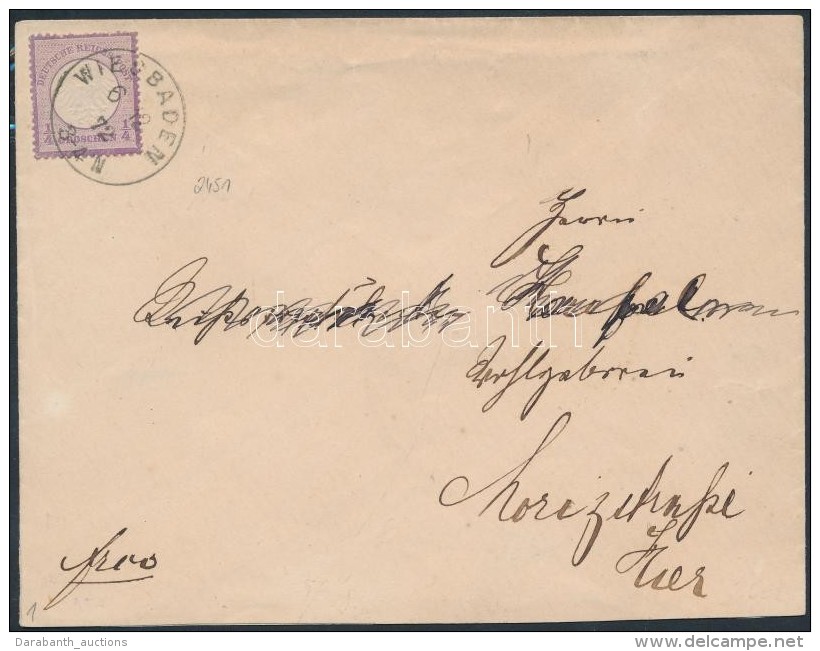 DEUTSCHE REICHS-POST
1/4 GROSCHEN 1/4
WIESBADEN
6 12
72
2451
Herrn
Wohlgeboren
Morizstraße
Hier
frco
1
darabanth
Darabanth_auctions
www.delcampe.net